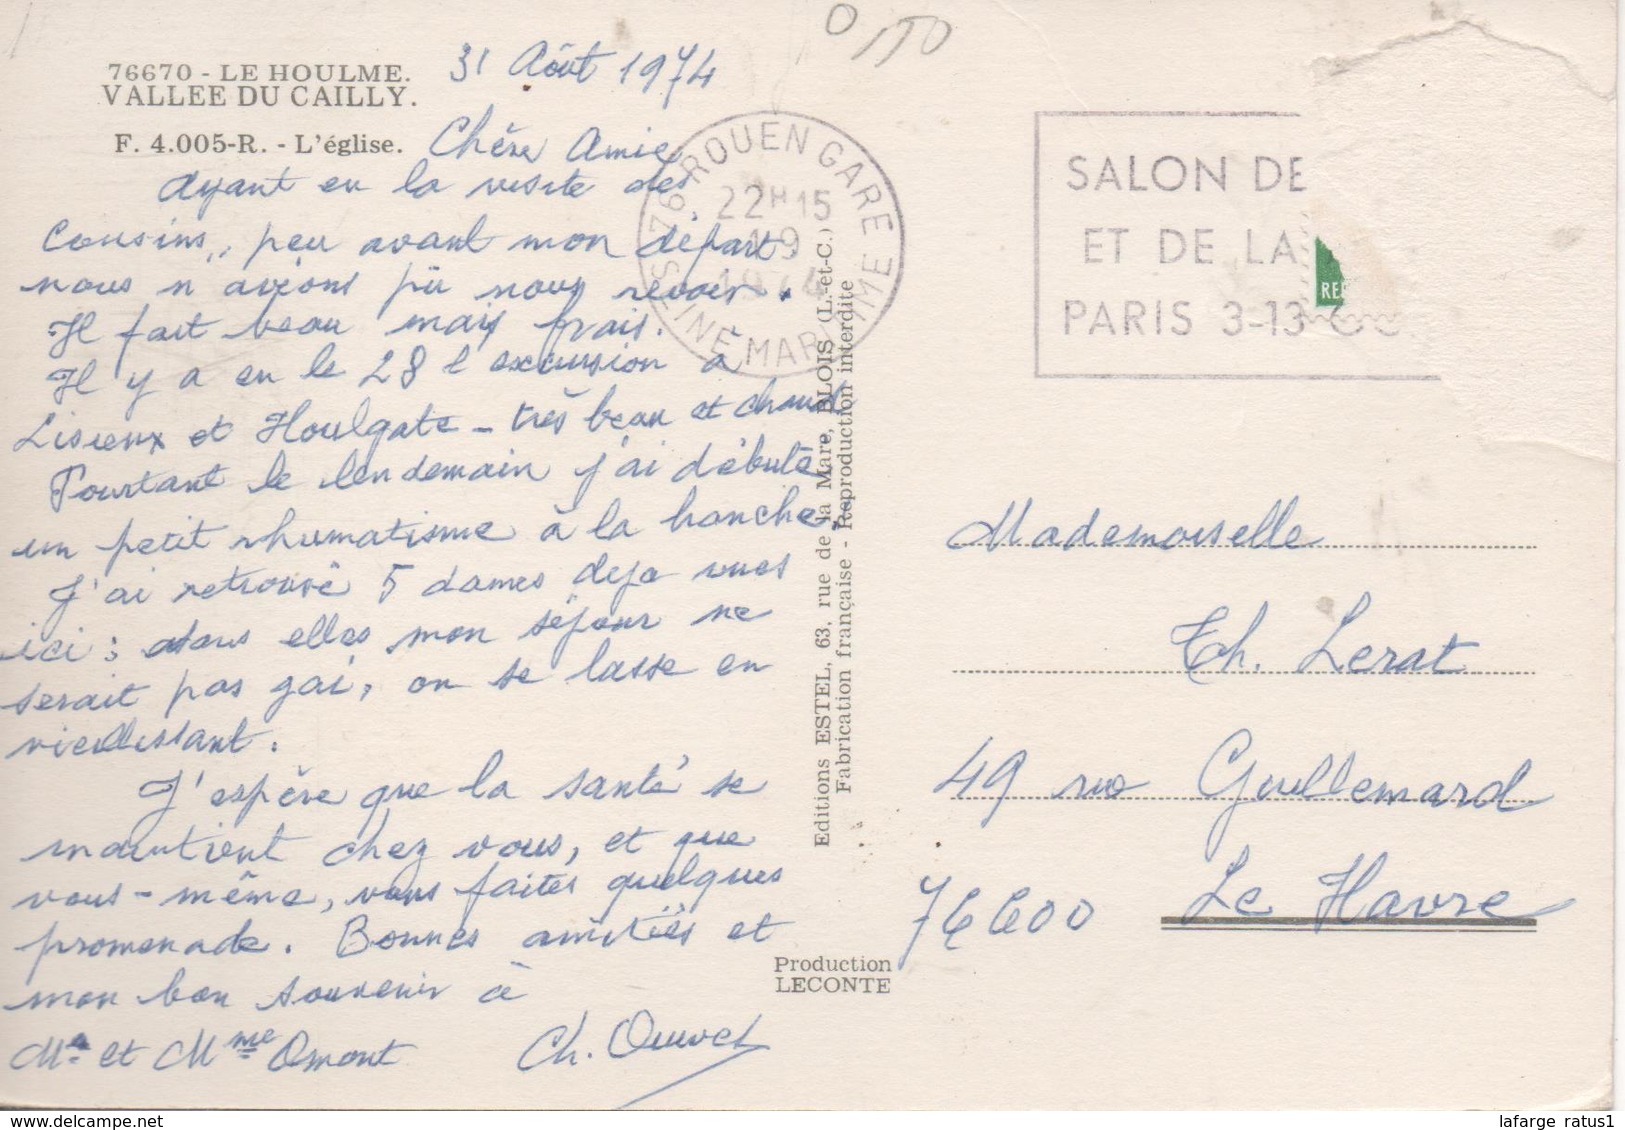 76670 - LE HOULME.
VALLEE DU CAILLY.
F. 4.005-R. - L'église.
31 Août 1974
Chère Amie
Ayant eu la visite des
Cousins, peu avant mon départ.
nous n'avions pû nous revoir.
Il fait beau mais frais.
Il y a eu le 28 l'excursion à
Lisieux et Houlgate - très beau et chaud
Pourtant le lendemain j'ai débuté
un petit rhumatisme à la hanche.
J'ai retrouvé 5 dames deja vues
ici : sans elles mon séjour ne
serait pas gai, on se lasse en
vieillissant.
J'espère que la santé se
maintient chez vous, et que
vous-même, vous faites quelques
promenade. Bonnes amitiés et
mon bon souvenir à
Mr et Mme Omont
Ch. Ouvel
76 ROUEN GARE
22H15
1-9
1974
SEINE MARITIME
SALON DE
ET DE LA
PARIS 3-13
RE
Editions ESTEL, 63, rue de la Mare, BLOIS (L.-et-C.)
Fabrication française - Reproduction interdite
Production
LECONTE
Mademoiselle
Th. Lerat
49 rue Guillemard
76600 Le Havre
lafarge ratus1